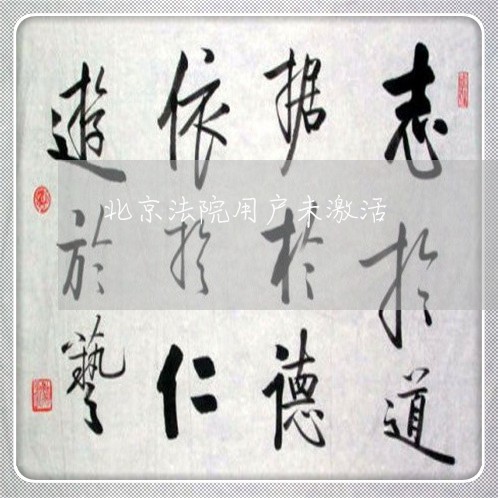 志扵道
据於德
依扵仁
遊於藝
北京法院用户未激活